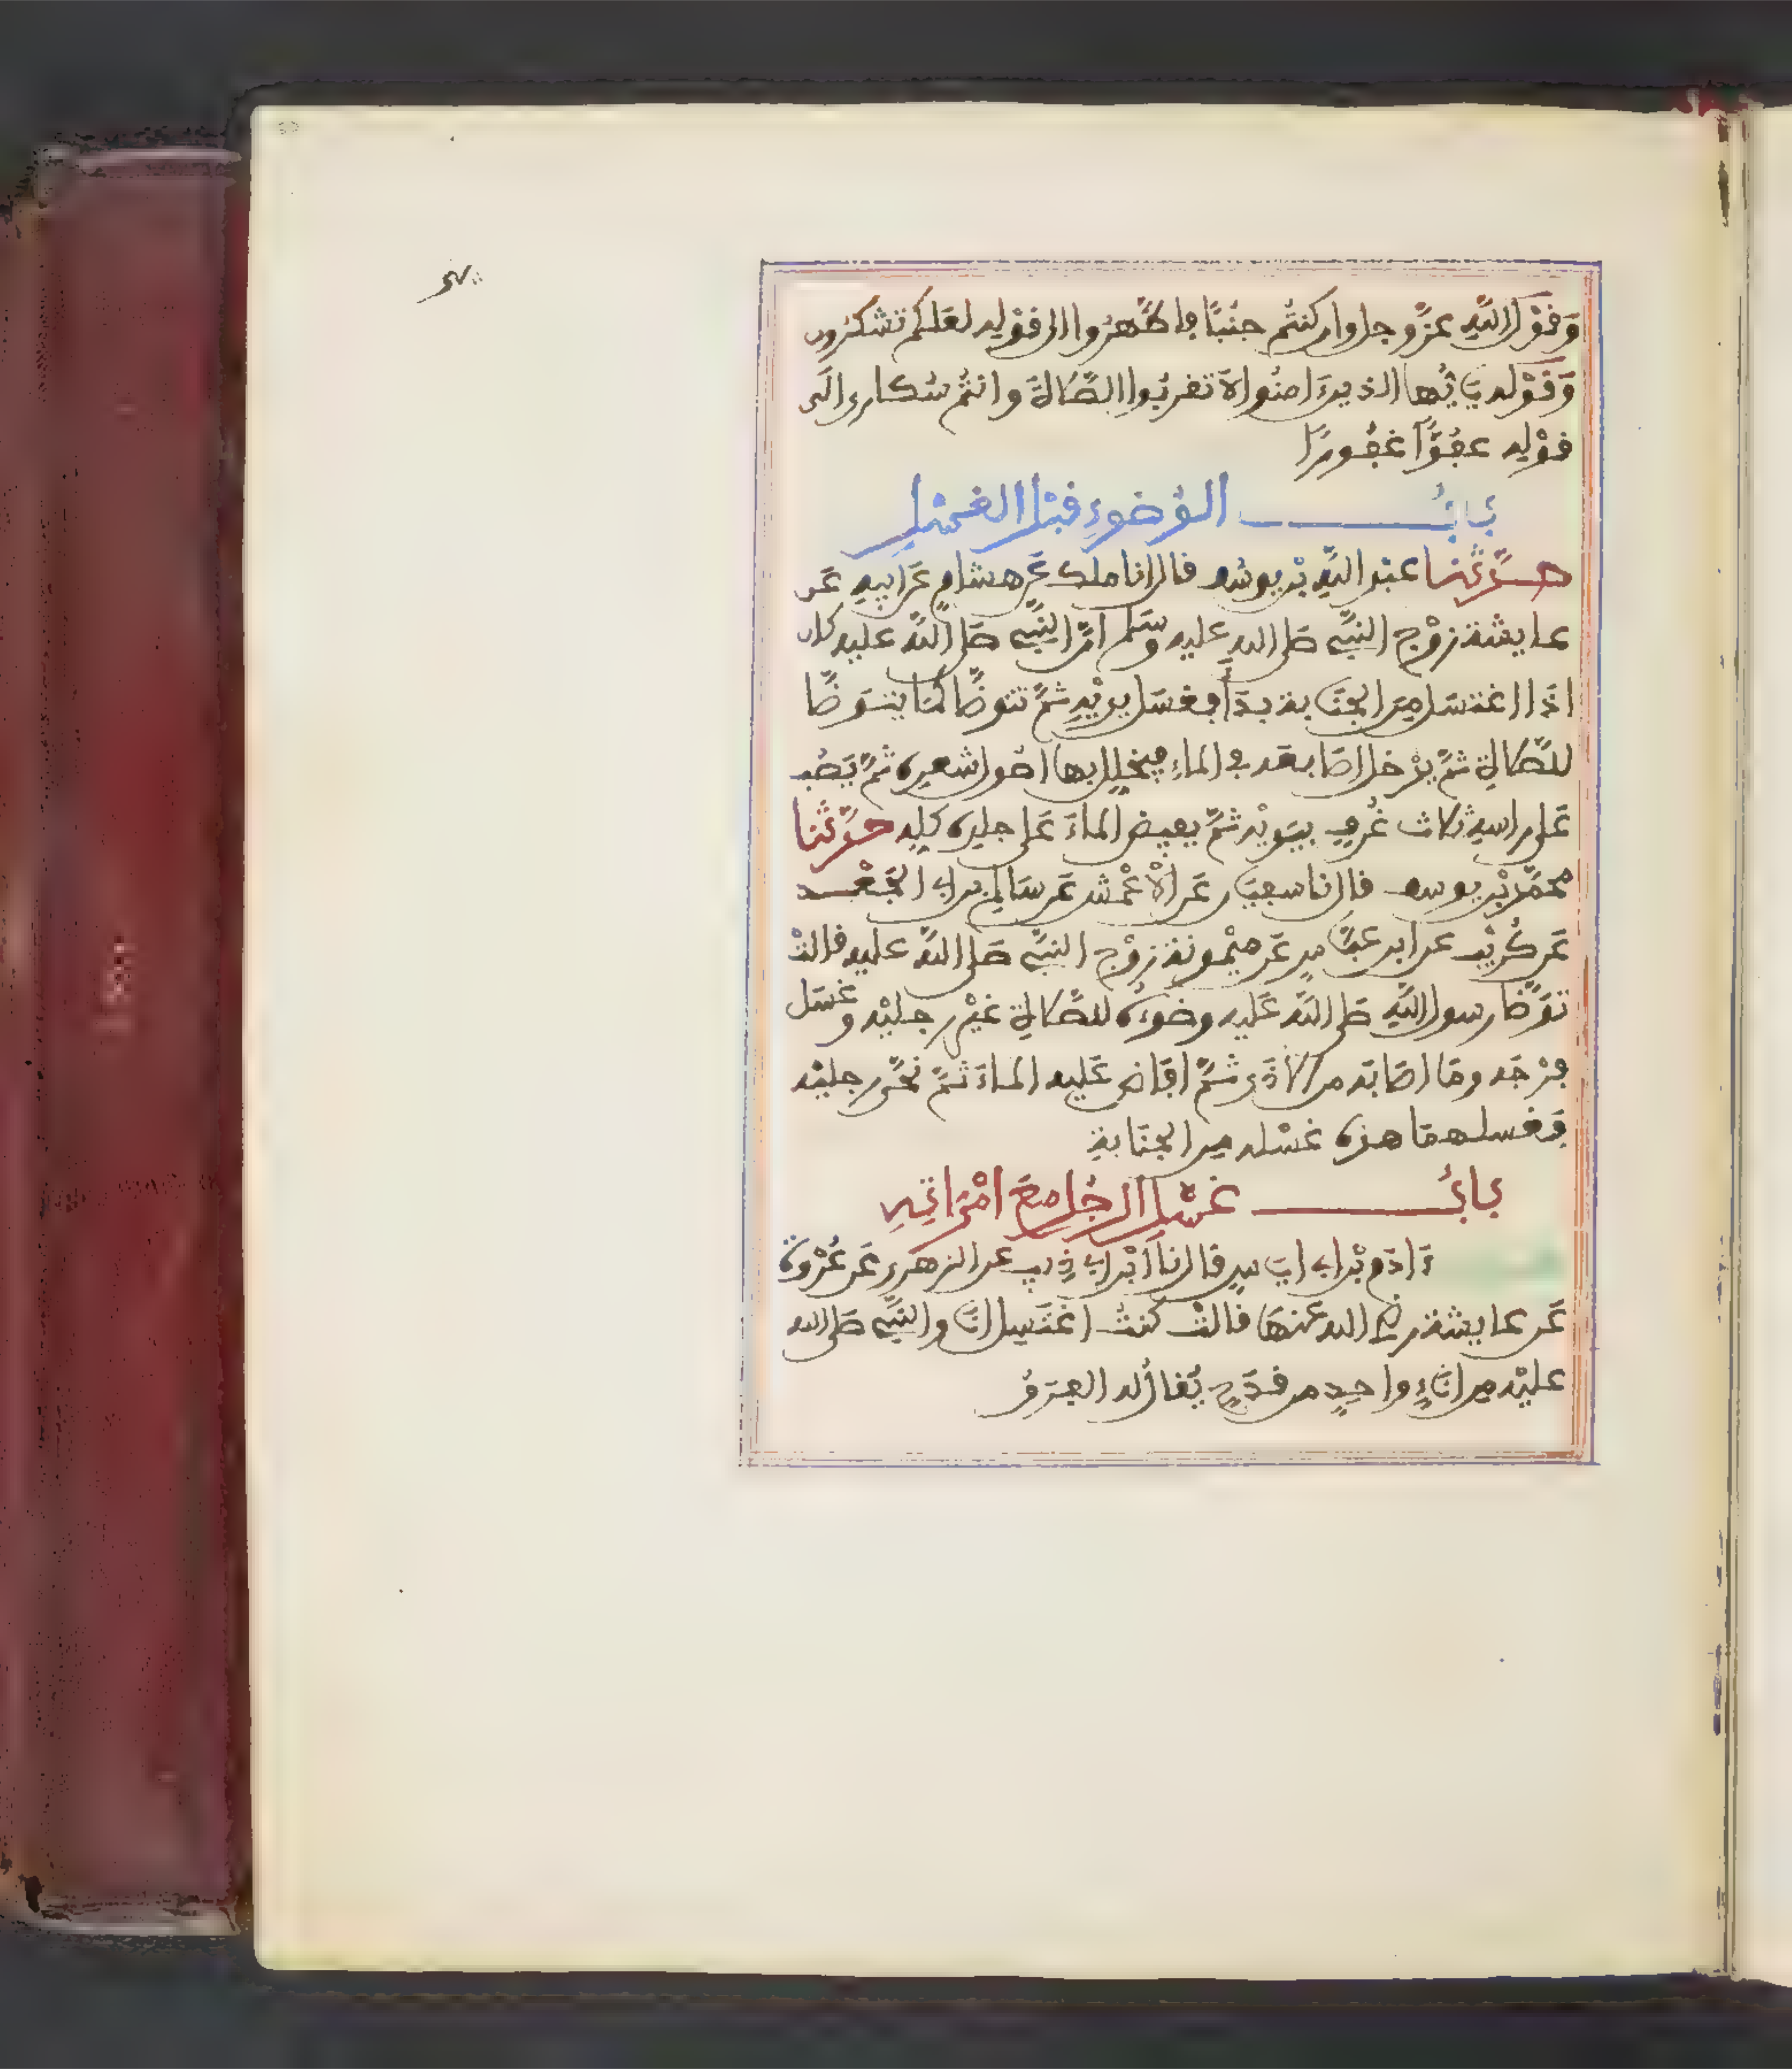 وَقَوْلِ اللَّهِ عَزَّ وجل وان كنتُم جنُبًا فاطَّهرُوا الى قوْلِه لعَلكم تشكرُون
وَقَوْلِه يَايُّها الذينَ امنُوا لا تقربُوا الصَّلاةَ وانتُم سُكارى الَى
قوْلِه عفُوًّا غفُورًا
بابُ الوُضوءِ قبْل الغسْلِ
حدَّثنا عبْد اللَّهِ بْن يوسُف قال انا ملك عَن هشامٍ عَن ابيهِ عَن
عايشة زوْج النبيِّ صَلى الله عليه وسَلم انَّ النبيَّ صَلى اللَّه عليه كان
اذَا اغتسَل مِنَ الجنَابة بدَأ فغسَل يديْهِ ثمَّ تتوضَّا كمَا يتوَضَّا
للصَّلاةِ ثمَّ يدْخل اصَابعَه في الماءِ فيخلِل بها اصُول شعرِه ثمَّ يَصُب
عَلى راسِه ثلاث غُرفٍ بيَديْه ثمَّ يفيض الماءَ عَلى جلدِه كلِه حدَّثنا
محمَّد بْن يوسف قال نا سفيَان عَن الاعْمش عَن سَالم بن ابي الجَعْد
عَن كُرَيْب عن ابن عبَّاسٍ عَن ميْمونة زوْج النبيِّ صَلى اللَّه عليه قالتْ
توَضَّا رسول اللَّهِ صَلى اللَّه عَليه وضوءَه للصَّلاةِ غيْر رجليْه وغسَل
فرْجَه ومَا اصَابَه من الاذَى ثمَّ افَاض عَليه الماءَ ثمَّ نحَّى رجليْه
فَغسلهمَا هذه غسْله من الجنَابةِ
بابُ غسْل الرجُل معَ امْرَاتِهِ
نَا ادَم بْن ابي ايَاسٍ قال نا ابْن ابي ذِيب عن الزهري عَن عُرْوَة
عَن عايشة رضي الله عنهَا قالتْ كنتُ اغتَسِل انَا والنبيُّ صَلى الله
عليْه من انَاءٍ واحِدٍ من قدَحٍ يُقالُ له الفرَقُ